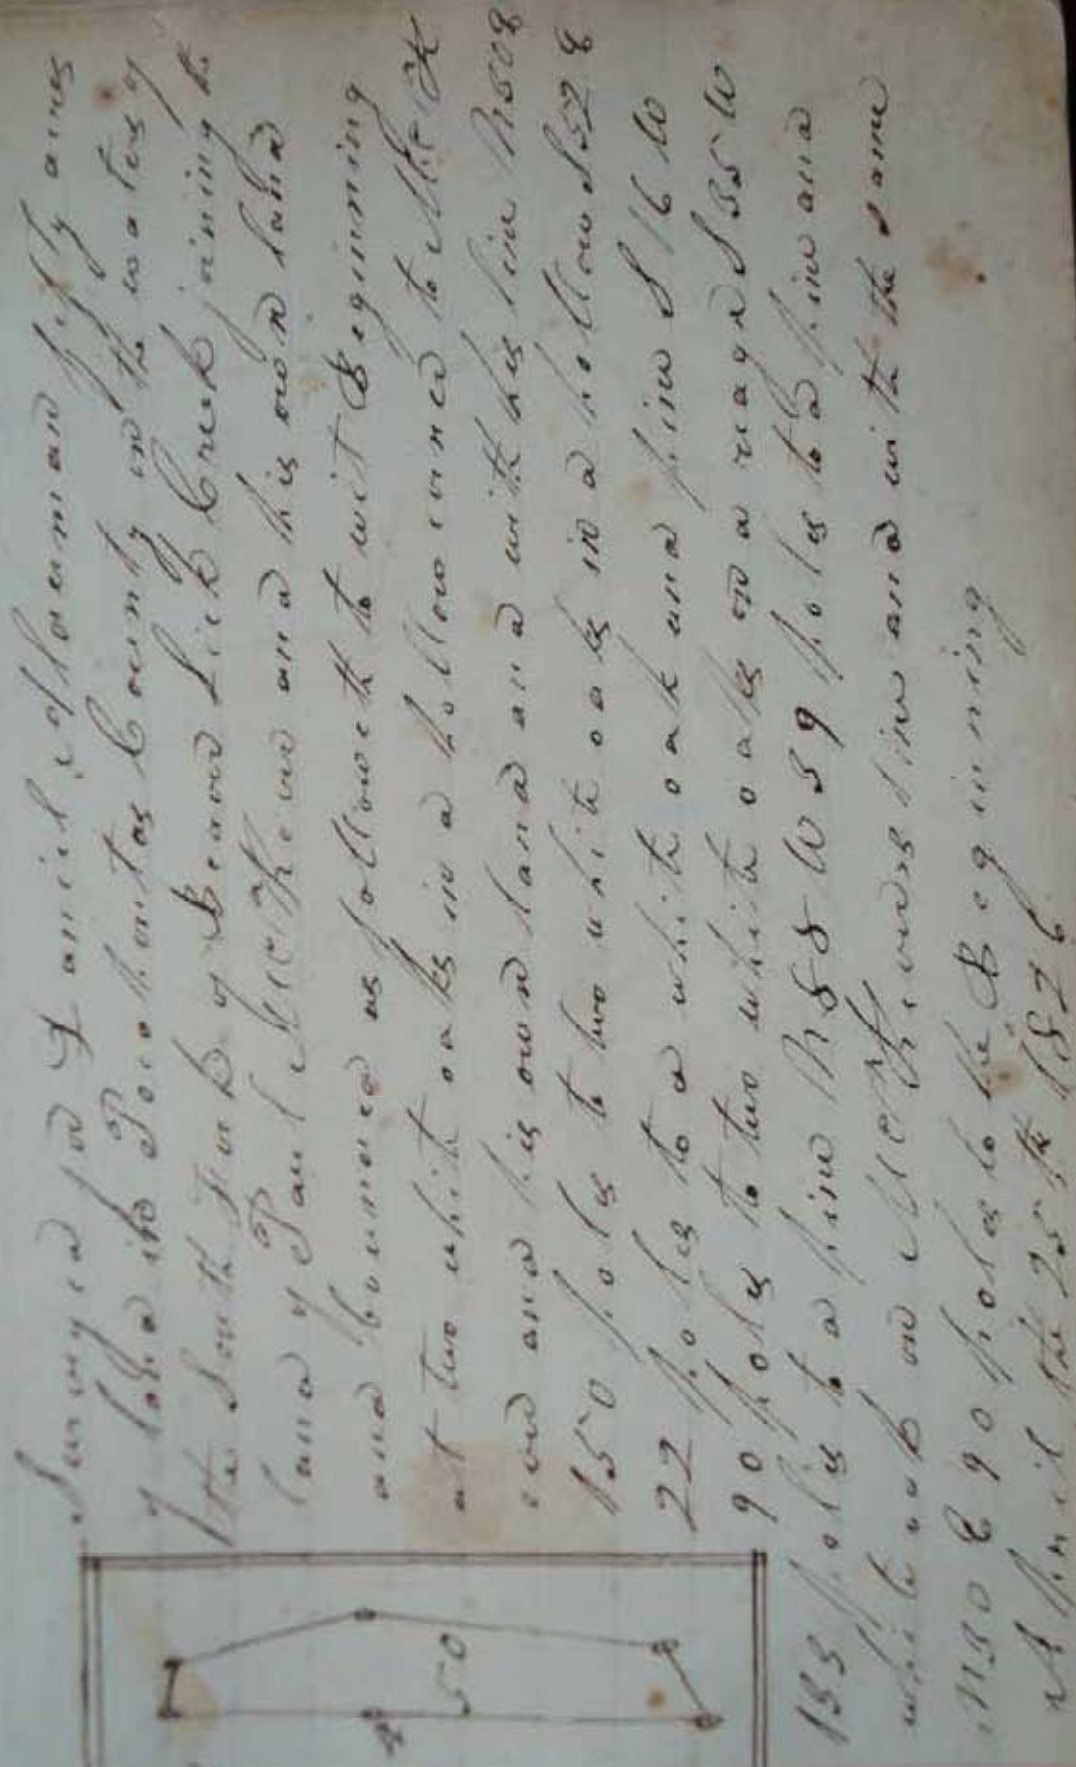 Surveyed for Daniel McLaunan fifty acres
of land in Pocohontas County on the waters of
the South Fork of Beaver Lick Creek joining the
land of Paul and his own land
and bounced as followeth to wit Begining
at two white oaks in a hollow corned to
and his own land and with his line
150 poles to two white oaks in a hollow S52 E
22 poles to a white oak and pine S16 W
90 poles to two white oaks on a S35 W
133 poles to a pine N 55 W 39 poles to a pine and
white oak on line and with the same
N30 E 90 poles to the Begining
April the 25th 1826
50